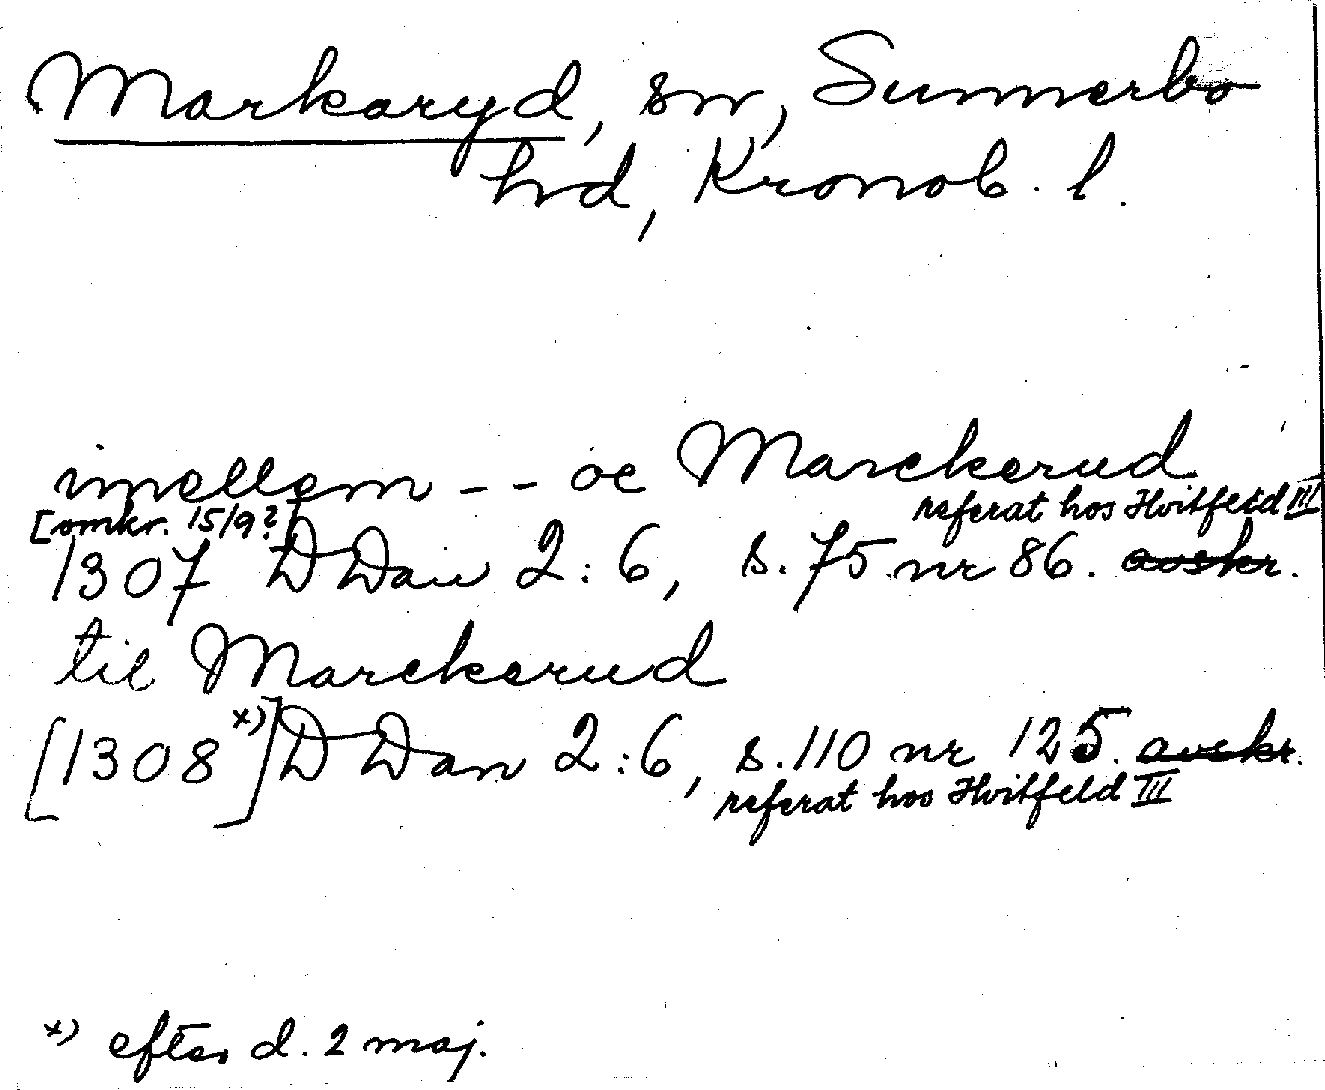 Markaryd, sn, Sunnerbo
hd, Kronob. l.
imellem -- oc Marckerud
referat hos Hvitfeld III
[omkr. 15/9?]
1307 DDan 2:6, s. 75 nr 86. avskr.
til Marckerud
[1308 x)] DDan 2:6, s. 110 nr 125. avskr.
referat hos Hvitfeld III
x) efter d. 2 maj.